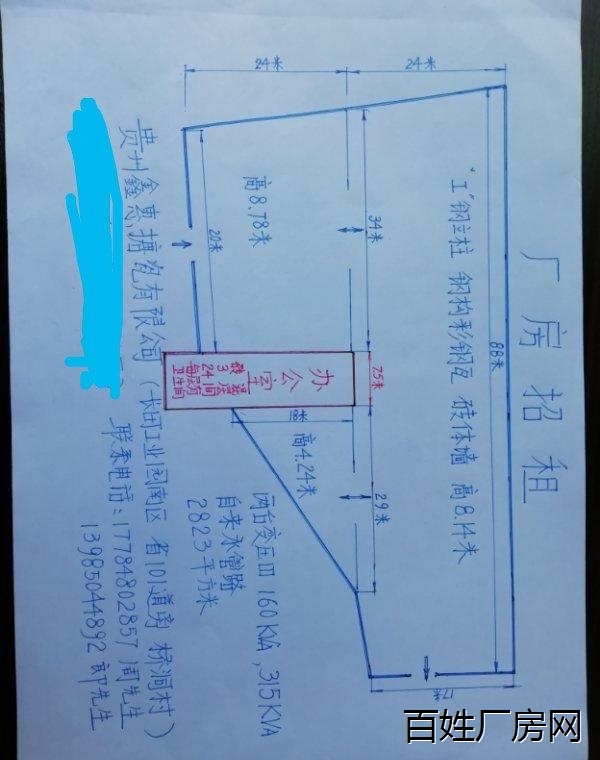 厂房招租
24米
24米
"工"钢立柱 钢构彩钢瓦 砖体墙 高8.14米
88米
34米
高8.78米
20米
办公室
砖混
3层
24间
每层有
卫生间
7.5米
18米
29米
高4.24米
17米
两台变压 160KVA,315KVA
自来水管路
2823平方米
贵州鑫惠搪瓷有限公司(长田工业园南区 省101道旁 桥洞村)
联系电话:17784802857 周先生
13985044892 郭先生
百姓厂房网